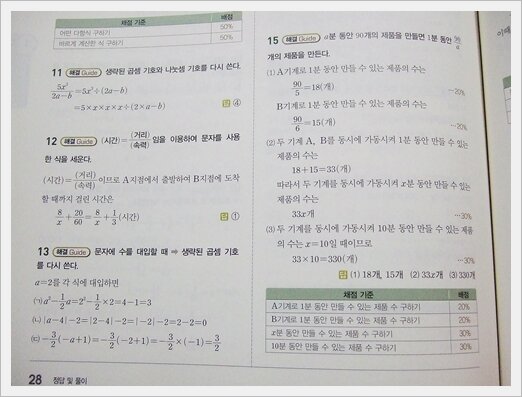 채점 기준 배점
어떤 다항식 구하기 50%
바르게 계산한 식 구하기 50%
11 해결 Guide 생략된 곱셈 기호와 나눗셈 기호를 다시 쓴다.
5x³/(2a-b)=5x³÷(2a-b)
=5×x×x×x÷(2×a-b)
답 ④
12 해결 Guide (시간)=(거리)/(속력) 임을 이용하여 문자를 사용
한 식을 세운다.
(시간)=(거리)/(속력) 이므로 A지점에서 출발하여 B지점에 도착
할 때까지 걸린 시간은
8/x+20/60=8/x+1/3(시간)
답 ①
13 해결 Guide 문자에 수를 대입할 때 ➡ 생략된 곱셈 기호
를 다시 쓴다.
a=2를 각 식에 대입하면
(ㄱ) a²-1/2a=2²-1/2×2=4-1=3
(ㄴ) |a-4|-2=|2-4|-2=|-2|-2=2-2=0
(ㄷ) -3/2(-a+1)=-3/2(-2+1)=-3/2×(-1)=3/2
28 정답 및 풀이
15 해결 Guide a분 동안 90개의 제품을 만들면 1분 동안 90/a
개의 제품을 만든다.
(1) A기계로 1분 동안 만들 수 있는 제품의 수는
90/5=18(개)
…20%
B기계로 1분 동안 만들 수 있는 제품의 수는
90/6=15(개)
…20%
(2) 두 기계 A, B를 동시에 가동시켜 1분 동안 만들 수 있는
제품의 수는
18+15=33(개)
따라서 두 기계를 동시에 가동시켜 x분 동안 만들 수 있는
제품의 수는
33x개
…30%
(3) 두 기계를 동시에 가동시켜 10분 동안 만들 수 있는 제품
의 수는 x=10일 때이므로
33×10=330(개)
…30%
답 (1) 18개, 15개 (2) 33x개 (3) 330개
채점 기준 배점
A기계로 1분 동안 만들 수 있는 제품 수 구하기 20%
B기계로 1분 동안 만들 수 있는 제품 수 구하기 20%
x분 동안 만들 수 있는 제품 수 구하기 30%
10분 동안 만들 수 있는 제품 수 구하기 30%